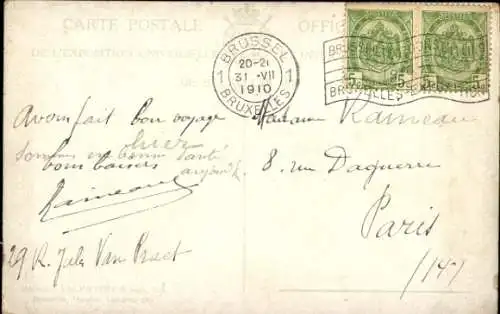 CARTE POSTALE OFFIC
DE L'EXPOSITION UNIVERSELLE
BRUSSEL
1 20-21 1
31 -VII
1910
BRUXELLES
BRUXELLES-EXPOSITION
5 5 5 5
Avons fait bon voyage
hier
Sommes en bonne santé
aujourd'h.
bons baisers
Rameau
29 R. Jules Van Praet
Madame Rameau
8 rue Daguerre
Paris
(14)